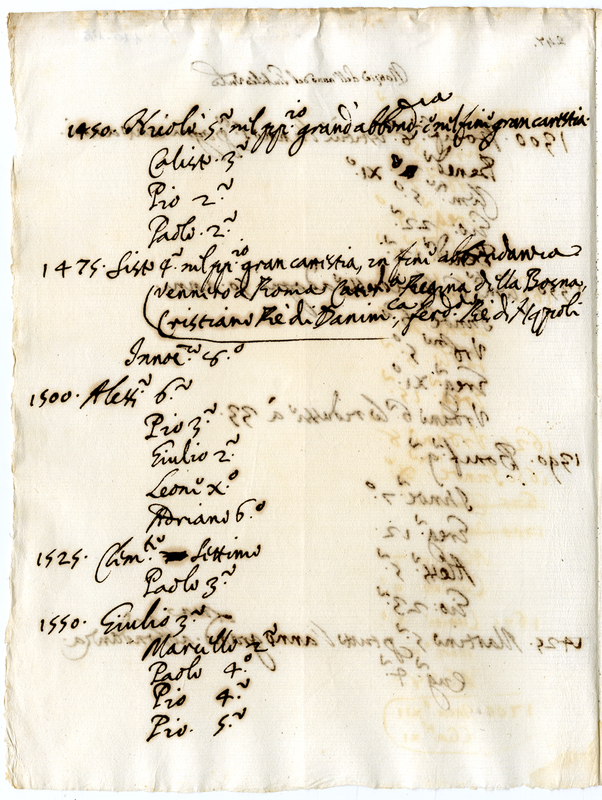 1450. Nicolò 5.º nel ppi.io grand'abbond.za, è nel fine gran carestia.
Calisto 3.º
Pio 2.º
Paolo 2.º
1475. Sisto 4.º nel ppi.io gran carestia, in fine abbondanza
Vennero a Roma Cater.a Regina della Bosna,
Cristiano Re di Danim.ca, ferd.o Re di Napoli
Innoc.o 8.º
1500. Aless.o 6.º
Pio 3.º
Giulio 2.º
Leone X.º
Adriano 6.º
1525. Clem.te Settimo
Paolo 3.º
1550. Giulio 3.º
Marcello 2.º
Paolo 4.º
Pio 4.º
Pio 5.º